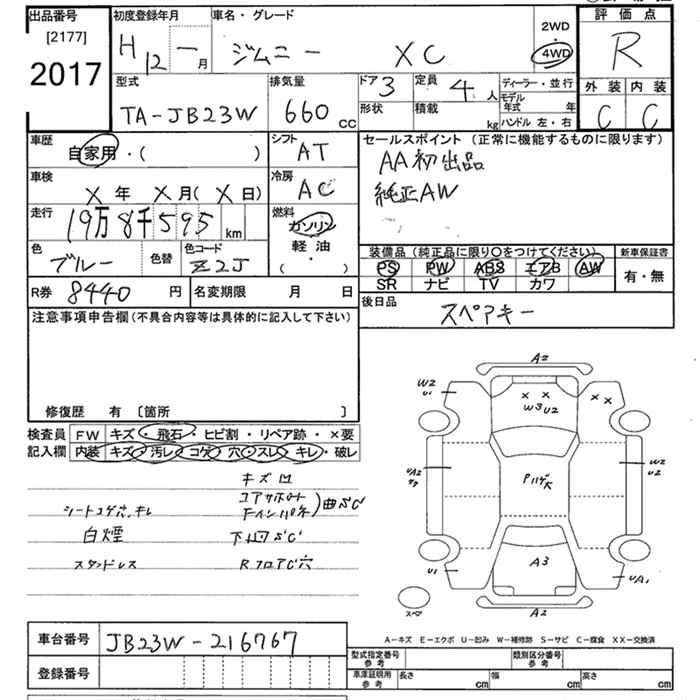 出品番号
[2177]
2017
初度登録年月
H 12 年 一 月
車名・グレード
ジムニー XC
2WD
・
4WD
評価点
R
型式
TA-JB23W
排気量
660 cc
ドア 3
形状
定員 4 人
積載 kg
ディーラー・並行
モデル年式 年
ハンドル 左・右
外装 内装
C C
車歴
自家用・( )
シフト
AT
セールスポイント (正常に機能するものに限ります)
AA初出品
純正AW
車検
X 年 X 月( X 日)
冷房
AC
走行
19万8千595 km
燃料
ガソリン
軽油
( )
色
ブルー
色替
色コード
Z2J
装備品(純正品に限り○をつけてください)
PS PW ABS エアB AW
SR ナビ TV カワ
新車保証書
有・無
R券 8440 円
名変期限 月 日
後日品
スペアキー
注意事項申告欄(不具合内容等は具体的に記入して下さい)
修復歴 有 〔箇所 〕
検査員記入欄
FW キズ・飛石・ヒビ割・リペア跡・×要
内装 キズ・汚レ・コゲ・穴・スレ・キレ・破レ
キズ凹
シートコゲ穴、キレ
コアサポート
Fインパネ)曲SC
白煙
下回SC
スタッドレス
RフロアC穴
A2
W2
U1
X X
W3 U2
X X
UA2
W2
U2
U1
A3
UA1
A2
スペア
A-キズ E-エクボ U-凹み W-補修跡 S-サビ C-腐食 XX-交換済
車台番号
JB23W-216767
登録番号
型式指定番号
参考
類別区分番号
参考
車庫証明用
参考
長さ cm
幅 cm
高さ cm